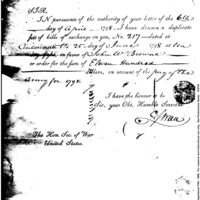 SIR.
IN pursuance of the authority of your letter of the 6th
day of April 1798 I have drawn a duplicate
sett of bills of exchange on you, No. 217 dated at
Cincinnati the 25 day of June 1798 at ten
days sight, in favor of John McDowell
or order for the sum of Eleven Hundred
dollars, on account of the pay of the
army for 1798.
I have the honor to be
Sir, your Obt. Humble Servant
The Hon. Sec. of War
United States.